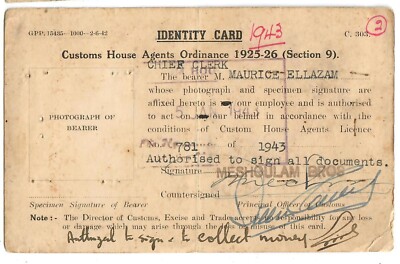 GPP. 15435—1000—2-6-42
IDENTITY CARD
1943
C. 303.
2
Customs House Agents Ordinance 1925-26 (Section 9).
CHIEF CLERK
The bearer M. MAURICE-ELLAZAM
whose photograph and specimen signature are
affixed hereto is our employee and is authorised
to act on our behalf in accordance with the
conditions of Custom House Agents Licence
PHOTOGRAPH OF
BEARER
No. 781 of 1943
Authorised to sign all documents.
Signature MESHOULAM BROS
Countersigned
Specimen Signature of Bearer
Principal Officer of Customs
Note :- The Director of Customs, Excise and Trade accepts no responsibility for any loss
or damage which may arise through any misuse of this card.
Authorized to sign & to collect money